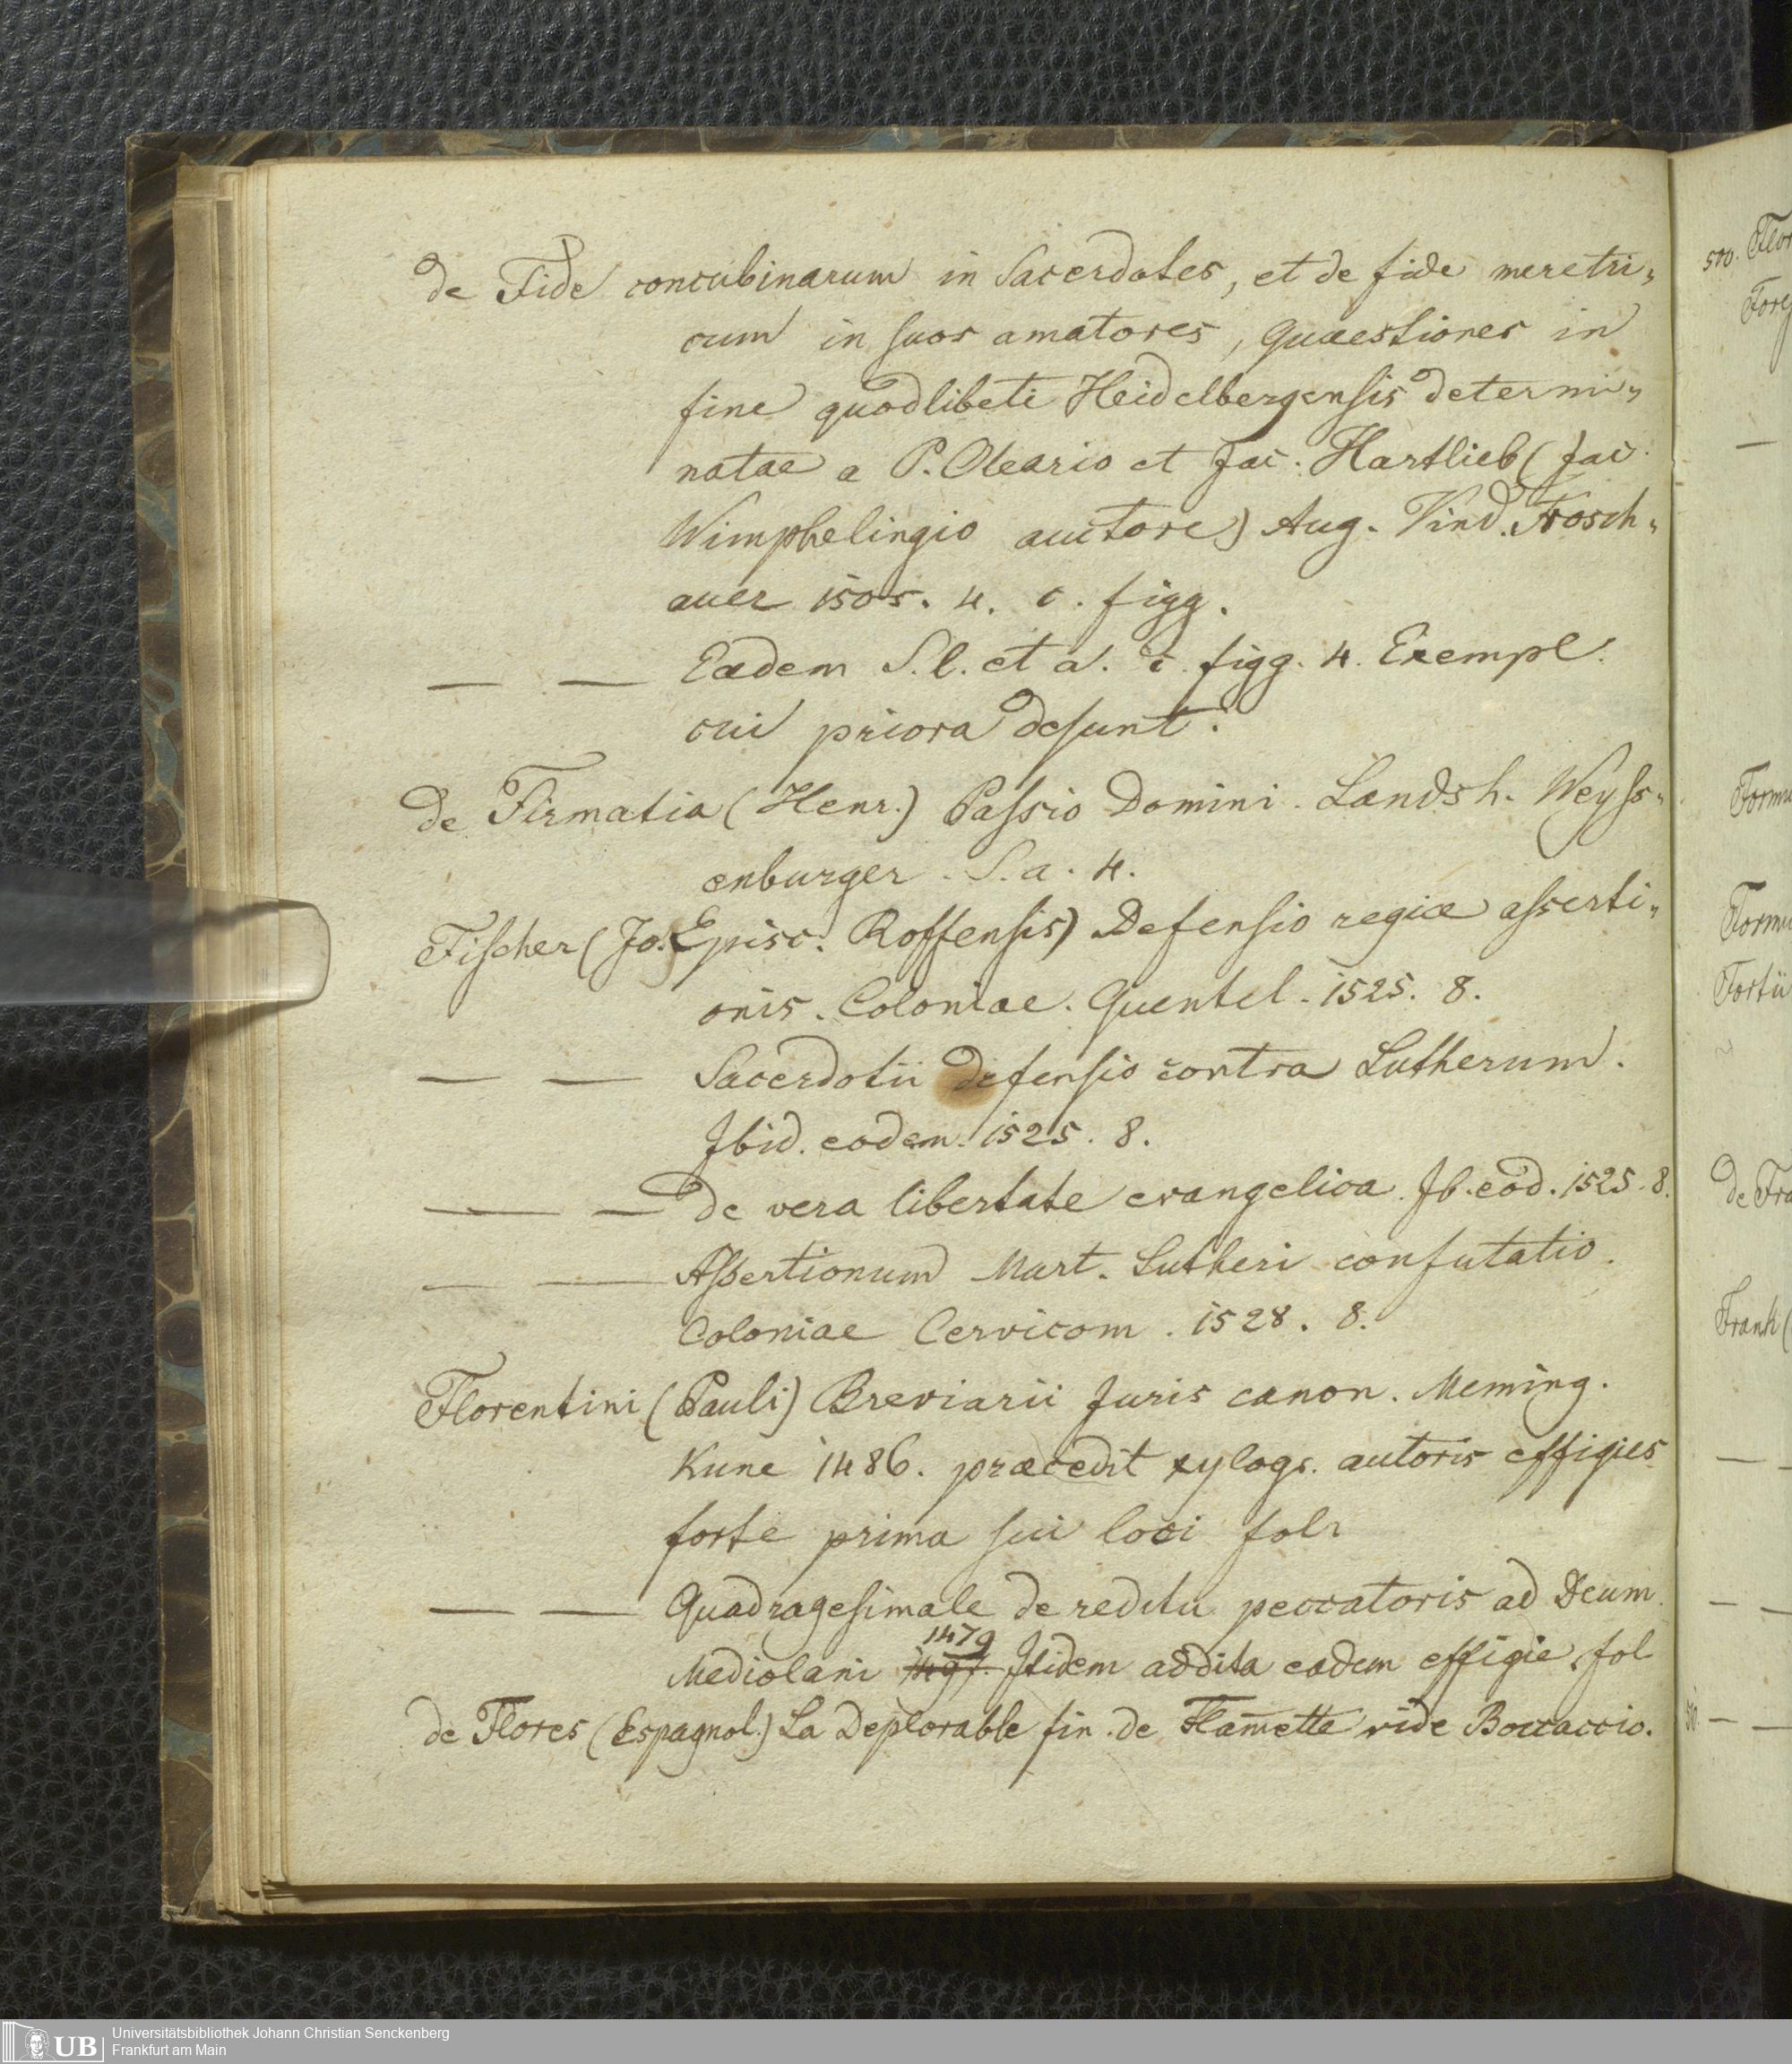 de Fide concubinarum in Sacerdotes, et de fide meretri„
cum in suos amatores, Quaestiones in
fine quodlibeti Heidelbergensis determi„
natae a P. Oleario et Jac: Hartlieb (Jac.
Wimphelingio auctore) Aug. Vind. Frosch„
auer 1505. 4. c. figg.
— — Eadem S. l. et a. c. figg. 4. Exempl.
cui priora desunt.
de Firmatia (Henr.) Passio Domini. Landsh. Weyss„
enburger. S. a. 4.
Fischer (Jo. Episc. Roffensis) Defensio regiae asserti„
onis. Coloniae. Quentel. 1525. 8.
— — Sacerdotii defensio contra Lutherum.
Ibid. eodem. 1525. 8.
— — De vera libertate evangelica. Ib. eod. 1525. 8.
— — Assertionum Mart. Lutheri confutatio.
Coloniae Cervicorn. 1528. 8.
Florentini (Pauli) Breviarii Juris canon. Meming.
Kune 1486. praecedit xylogr. autoris effigies
forte prima sui loci fol.
— — Quadragesimale de reditu peccatoris ad Deum.
1479
Mediolani Itidem addita eadem effigie. fol
de Flores (Espagnol.) La Deplorable fin de Flamette vide Boccaccio.
500. Flor
Forma
Forma
de Fra
Frank (
UB Universitätsbibliothek Johann Christian Senckenberg
Frankfurt am Main